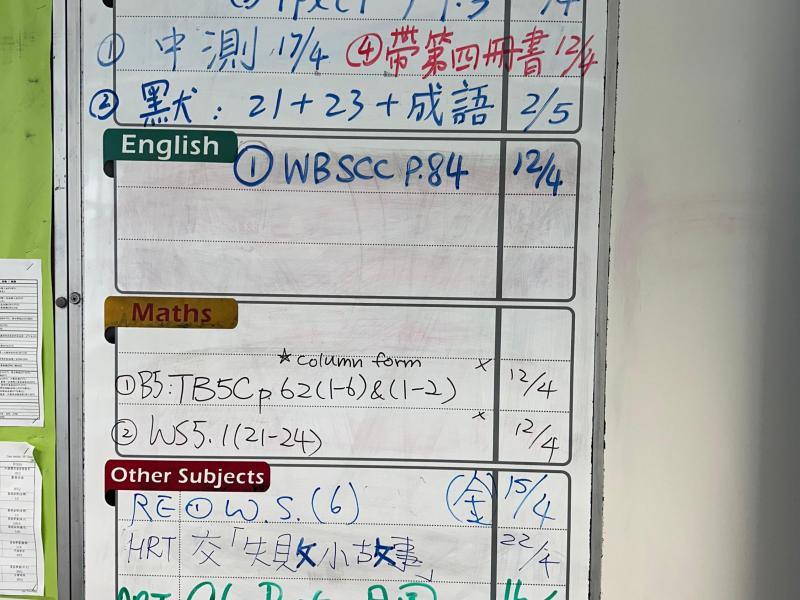 ① 中測 17/4 ④帶第四冊書 12/4
② 默：21+23+成語 2/5
English
① WBSCC P.84 12/4
Maths
★ column form
① B5:TB5Cp62(1-6)&(1-2) × 12/4
② WS5.1(21-24) × 12/4
Other Subjects
RE ① W.S.(6) (金) 15/4
HRT 交「失敗小故事」 22/4